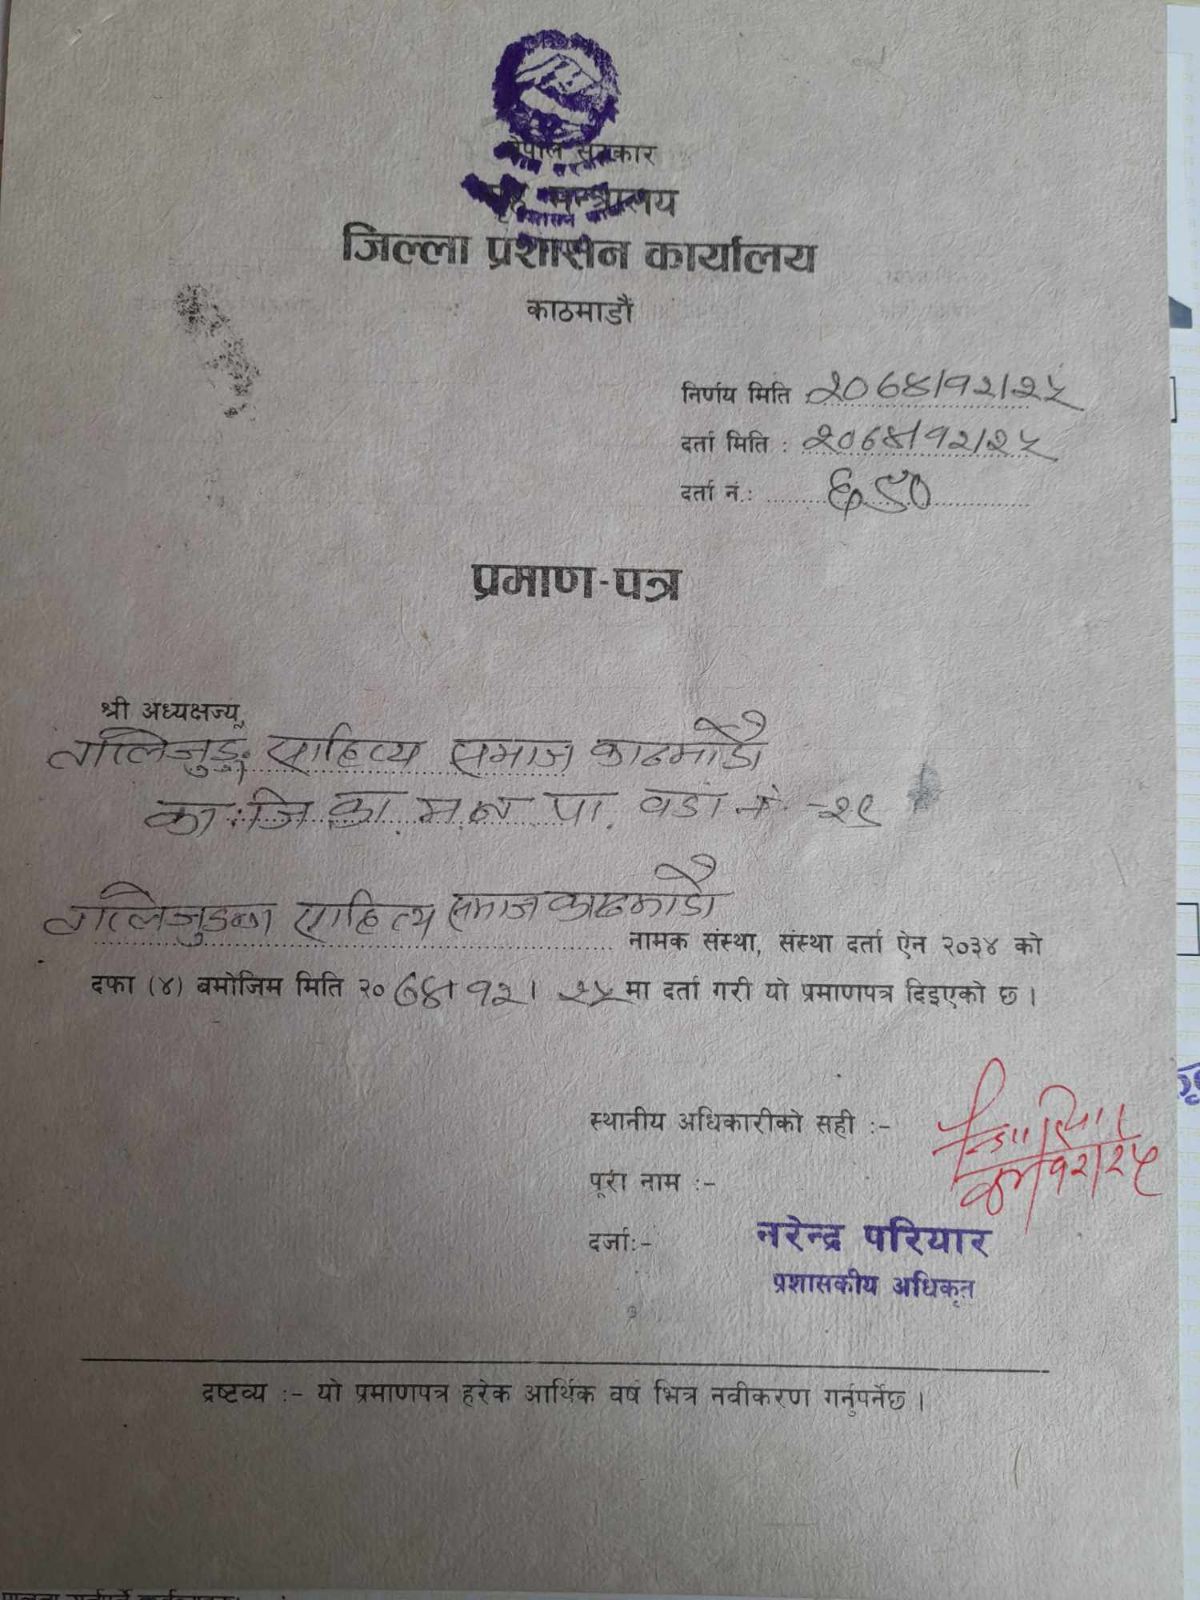 नेपाल सरकार
गृह मन्त्रालय
जिल्ला प्रशासन कार्यालय
काठमाडौं
निर्णय मिति २०६४।१२।२५
दर्ता मिति : २०६४।१२।२५
दर्ता नं.: ६९०
प्रमाण-पत्र
श्री अध्यक्षज्यू,
साहित्य समाज काठमाडौं
का.जि.का.म.न.पा. वडा नं -२९
साहित्य समाज काठमाडौं नामक संस्था, संस्था दर्ता ऐन २०३४ को
दफा (४) बमोजिम मिति २०६४।१२।२५ मा दर्ता गरी यो प्रमाणपत्र दिइएको छ ।
स्थानीय अधिकारीको सही :-
पूरा नाम :-
दर्जा:-
नरेन्द्र परियार
प्रशासकीय अधिकृत
द्रष्टव्य :- यो प्रमाणपत्र हरेक आर्थिक वर्ष भित्र नवीकरण गर्नुपर्नेछ ।